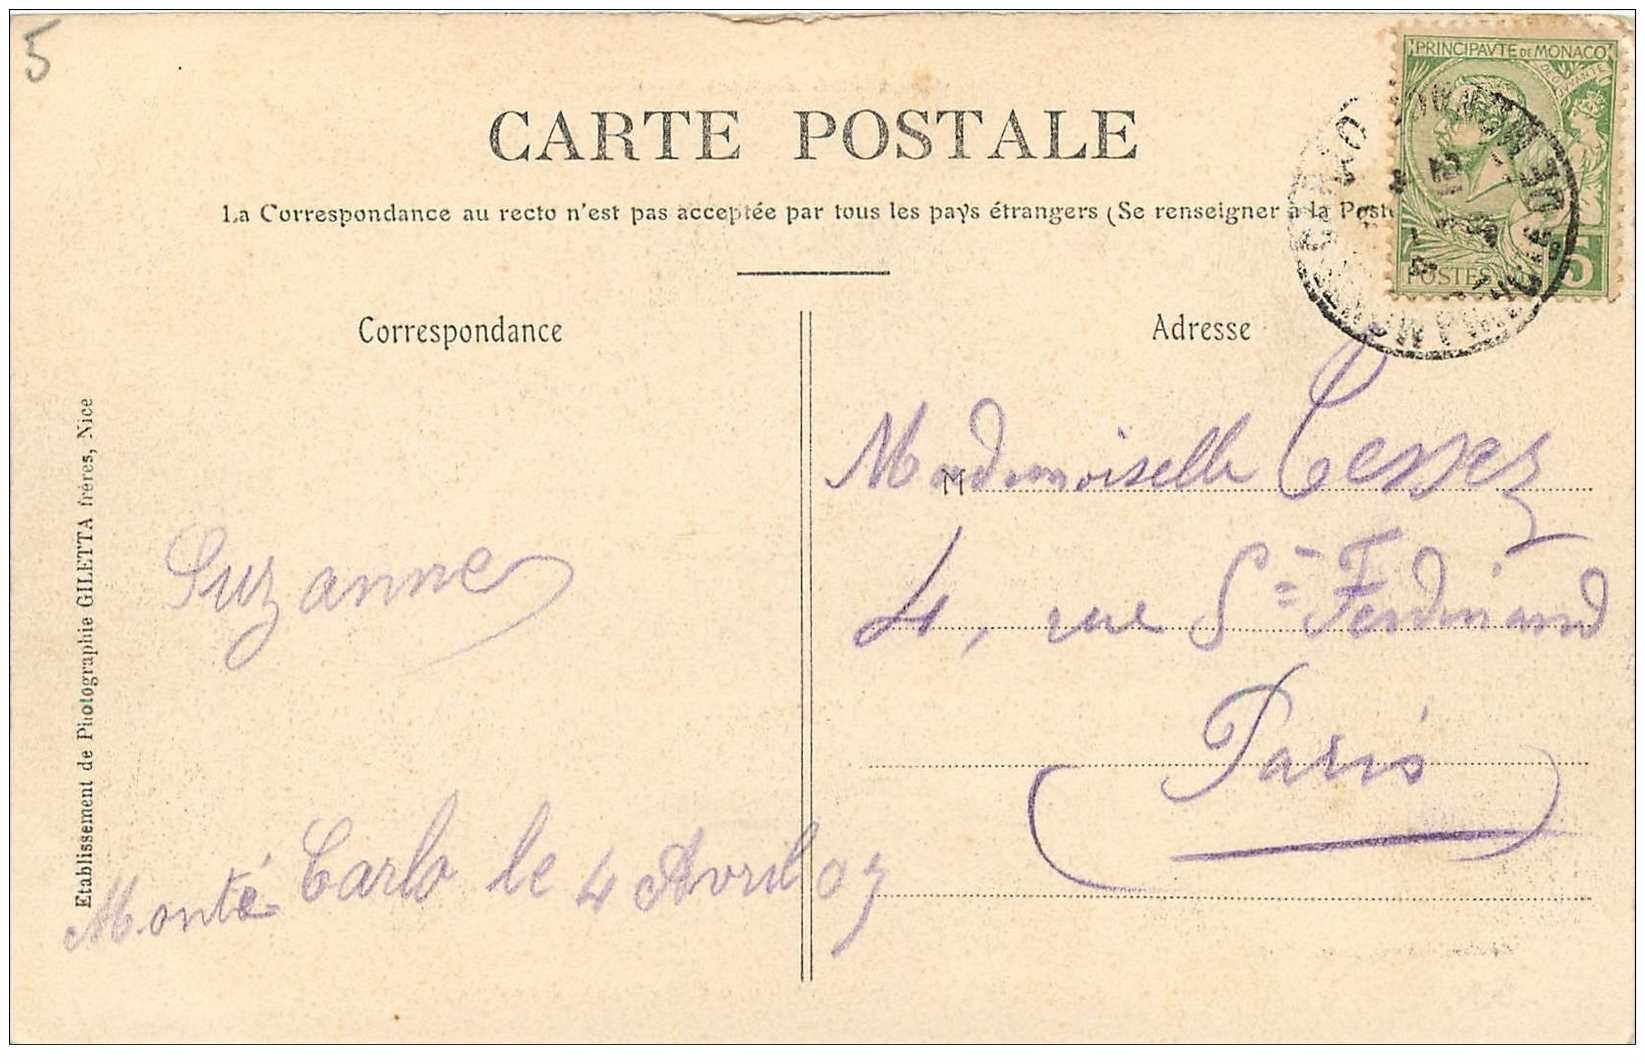 5
CARTE POSTALE
La Correspondance au recto n'est pas acceptée par tous les pays étrangers (Se renseigner à la Poste
PRINCIPAVTE DE MONACO
DEO JUVANTE
POSTES
5
Correspondance
Adresse
Etablissement de Photographie GILETTA frères, Nice
M
Mademoiselle
4, rue St= Ferdinand
Paris
Suzanne
Monté-Carlo le 4 Avril 07